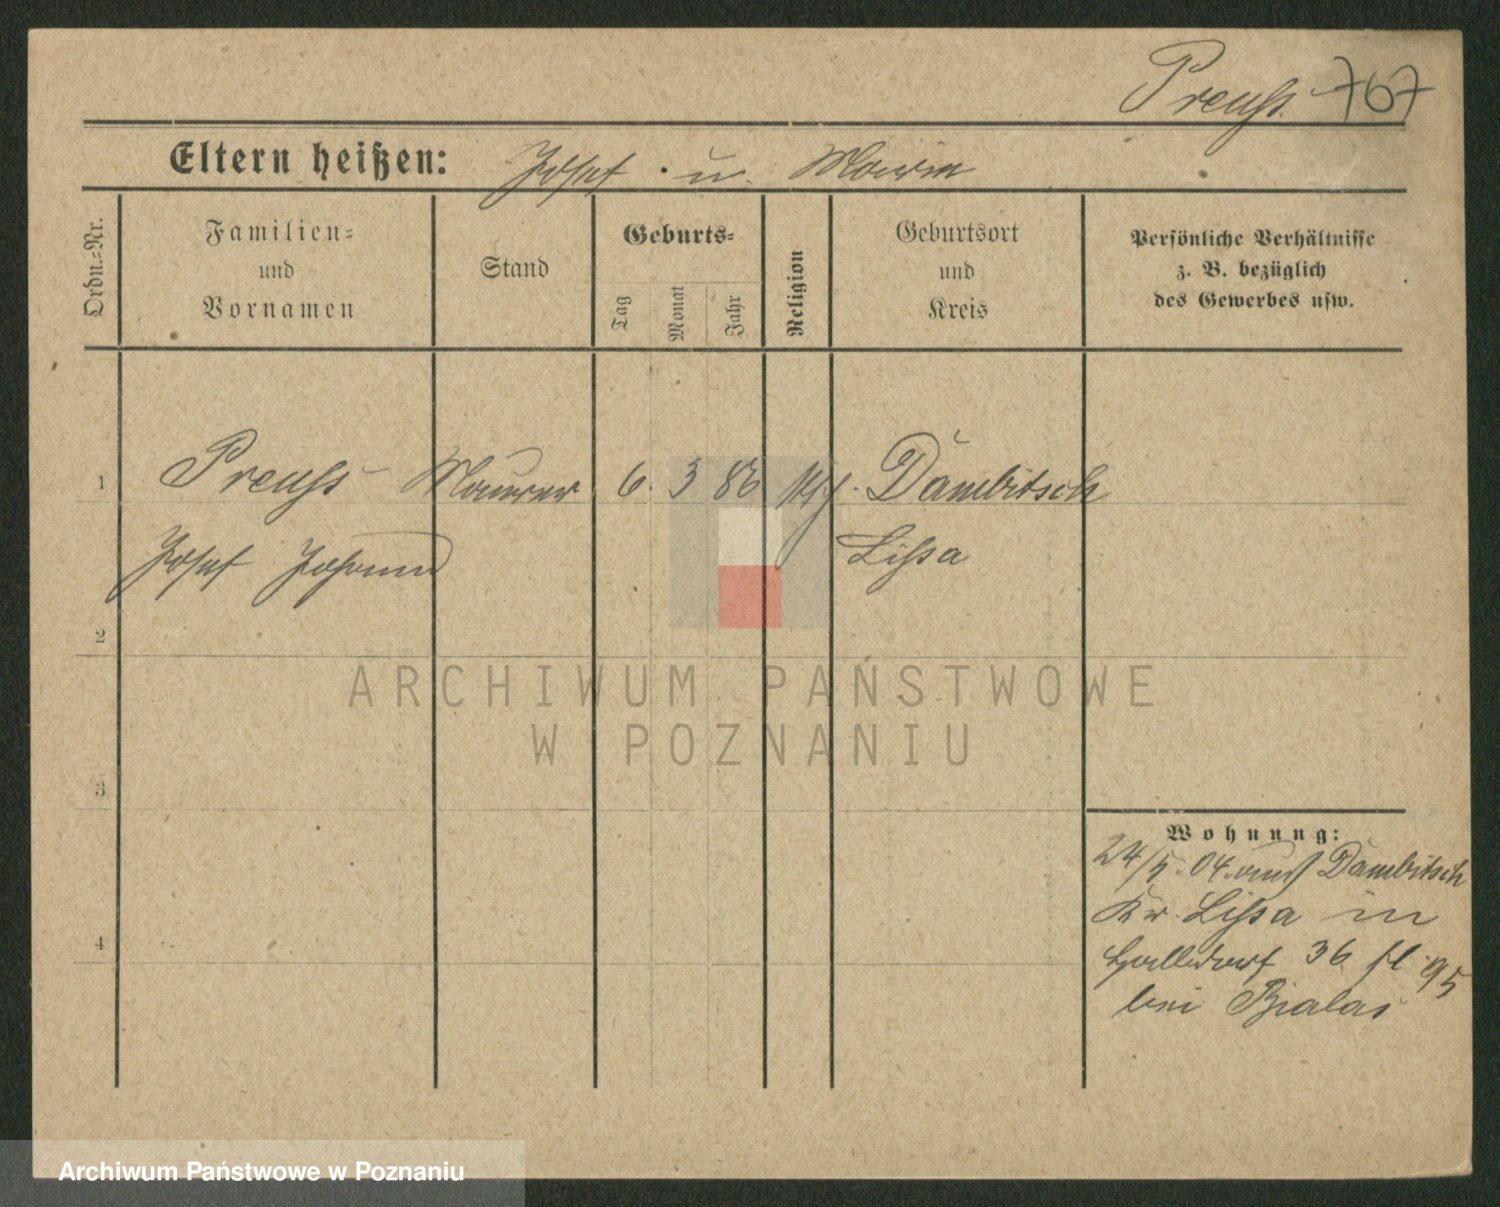 Preuß 767
Eltern heißen: Josef u. Maria
Ordn.-Nr.
Familien-
und
Vornamen
Stand
Geburts-
Tag
Monat
Jahr
Religion
Geburtsort
und
Kreis
Persönliche Verhältnisse
z. B. bezüglich
des Gewerbes usw.
1 Preuß Maurer 6. 3 86 Dambitsch
Josef Johann Lissa
2
3
4
Wohnung:
24/5. 04. aus Dambitsch
Kr. Lissa in
36 95
bei Bialas
ARCHIWUM PAŃSTWOWE
W POZNANIU
Archiwum Państwowe w Poznaniu